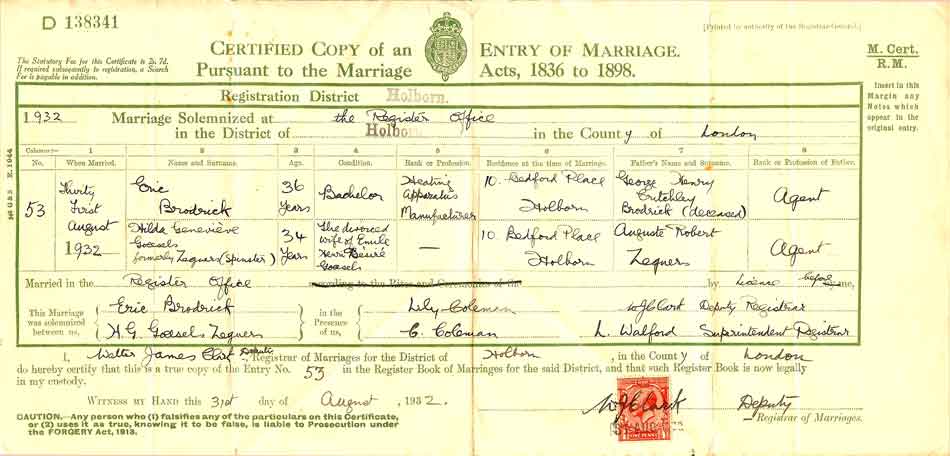 D 138341
[Printed by authority of the Registrar-General.]
CERTIFIED COPY OF AN ENTRY OF MARRIAGE.
Pursuant to the Marriage Acts, 1836 to 1898.
The Statutory Fee for this Certificate is 2s. 7d.
If required subsequently to registration, a Search
Fee is payable in addition.
M. Cert.
R.M.
Insert in this
Margin any
Notes which
appear in the
original entry.
Registration District Holborn.
1932 Marriage Solemnized at the Register Office
in the District of Holborn in the County of London
Columns:— 1 2 3 4 5 6 7 8
No. When Married. Name and Surname. Age. Condition. Rank or Profession. Residence at the time of Marriage. Father's Name and Surname. Rank or Profession of Father.
53 Thirty First August 1932
Eric Brodrick 36 Years Bachelor Heating Apparatus Manufacturer 10. Bedford Place Holborn George Henry Critchley Brodrick (deceased) Agent
Hilda Geneviève Goesels formerly Zeguers (Spinster) 34 Years The divorced wife of Emile Henri Desiré Goesels — 10 Bedford Place Holborn Auguste Robert Zeguers Agent
Married in the Register Office according to the Rites and Ceremonies of the by Licence before me,
This Marriage was solemnized between us, Eric Brodrick
H.G. Goesels Zeguers
in the Presence of us, Lily Coleman
C. Coleman
W J Clark Deputy Registrar
L. Walford Superintendent Registrar
I, Walter James Clark Deputy Registrar of Marriages for the District of Holborn, in the County of London
do hereby certify that this is a true copy of the Entry No. 53 in the Register Book of Marriages for the said District, and that such Register Book is now legally
in my custody.
WITNESS MY HAND this 31st day of August, 1932.
W J Clark Deputy
Registrar of Marriages.
CAUTION.—Any person who (1) falsifies any of the particulars on this Certificate,
or (2) uses it as true, knowing it to be false, is liable to Prosecution under
the FORGERY Act, 1913.
ONE PENNY